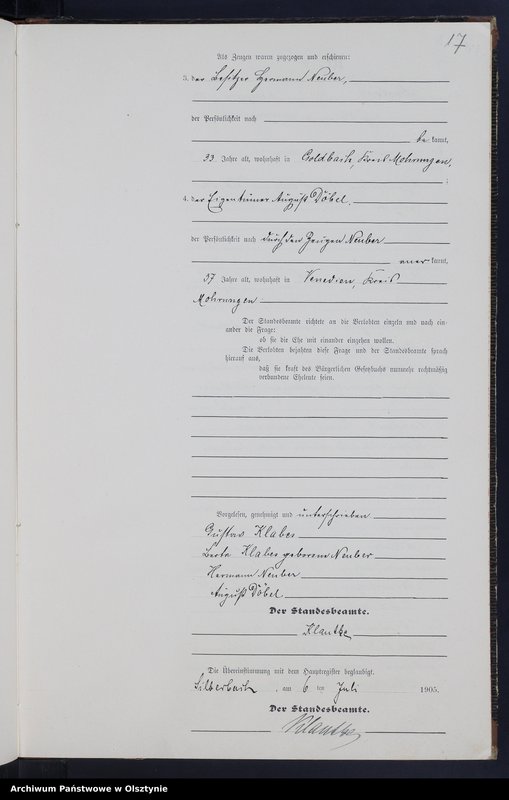 17
Als Zeugen waren zugezogen und erschienen:
3. der Besitzer Hermann Neuber,
der Persönlichkeit nach
be kannt,
33 Jahre alt, wohnhaft in Goldbach, Kreis Mohrungen,
;
4. der Eigentümer August Döbel,
der Persönlichkeit nach durch den Zeugen Neuber
aner kannt,
57 Jahre alt, wohnhaft in Venedien, Kreis
Mohrungen
Der Standesbeamte richtete an die Verlobten einzeln und nach ein-
ander die Frage:
ob sie die Ehe mit einander eingehen wollen.
Die Verlobten bejahten diese Frage und der Standesbeamte sprach
hierauf aus,
daß sie kraft des Bürgerlichen Gesetzbuchs nunmehr rechtmäßig
verbundene Eheleute seien.
Vorgelesen, genehmigt und unterschrieben
Gustav Klabes
Klabes geborene Neuber
Hermann Neuber
August Döbel
Der Standesbeamte.
Klautke
Die Übereinstimmung mit dem Hauptregister beglaubigt.
Silberbach, am 6 ten Juli 1905.
Der Standesbeamte.
Klautke
Archiwum Państwowe w Olsztynie